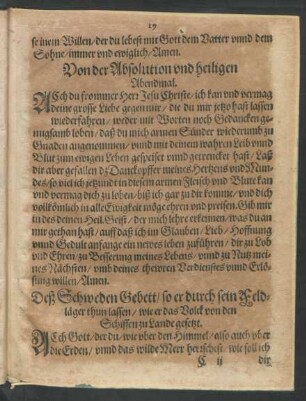 19
seinem Willen/ der du lebest mit Gott dem Vatter vnnd dem
Sohne/ immer vnd ewiglich/ Amen.
Von der Absolution vnd heiligen
Abendmal.
ACh du frommer Herr Jesu Christe/ ich kan vnd vermag
deine grosse Liebe gegen mir/ die du mir jetzo hast lassen
wiederfahren/ weder mit Worten noch Gedancken ge-
nugsamb loben/ daß du mich armen Sünder wiederumb zu
Gnaden angenommen/ vnnd mit deinem wahren Leib vnnd
Blut zum ewigen Leben gespeiset vnnd getrencket hast/ Laß
dir aber gefallen dz Danckopffer meines Hertzens vnd Mun-
des/ so viel ich jetzund in diesem armen Fleisch vnd Blut kan
vnd vermag dich zu loben/ biß ich gar zu dir komme/ vnd dich
vollkömlich in alle Ewiakeit möge ehren vnd preisen. Gib mir
in des deinen Heil. Geist/ der mich lehre erkennen/ was du an
mir gethan hast/ auff daß ich im Glauben/ Lieb/ Hoffnung
vnnd Gedult anfange ein newes leben zuführen/ dir zu Lob
vnd Ehren/ zu Besserung meines Lebens/ vnnd zu Nutz mei-
nes Nächsten/ vmb deines thewren Verdienstes vnnd Erlö-
sung willen/ Amen.
Deß Schweden Gebett/ so er durch sein Feld-
läger thun lassen/ wie er das Volck von den
Schiffen zu Lande gesetzt.
ACh Gott/ der du/ wie vber den Himmel/ also auch vber
die Erden/ vnnd das wilde Meer herrschest/ wie soll ich
C ij
dir